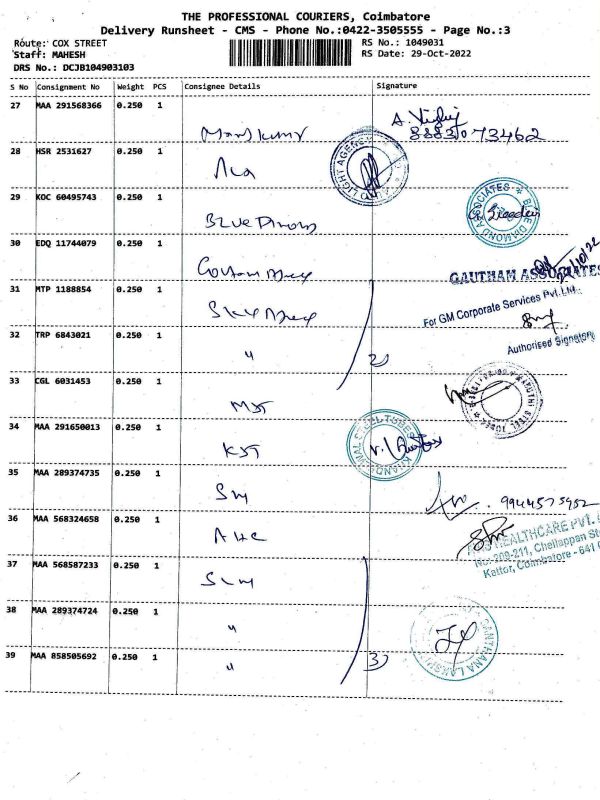 THE PROFESSIONAL COURIERS, Coimbatore
Delivery Runsheet - CMS - Phone No.:0422-3505555 - Page No.:3
Route: COX STREET
RS No.: 1049031
Staff: MAHESH
RS Date: 29-Oct-2022
DRS No.: DCJB104903103
S No Consignment No Weight PCS Consignee Details Signature
27 MAA 291568366 0.250 1
8883073462
28 HSR 2531627 0.250 1
LIGHT AGENC
29 KOC 60495743 0.250 1
BLUE DIAMOND ASSOCIATES
30 EDQ 11744079 0.250 1
GAUTHAM ASSOCIATES
31 MTP 1188854 0.250 1
For GM Corporate Services Pvt.Ltd.,
Authorised Signatory
32 TRP 6843021 0.250 1 " 2)
33 CGL 6031453 0.250 1
MST
34 MAA 291650013 0.250 1
KST
35 MAA 289374735 0.250 1
Sm 9944575952
36 MAA 568324658 0.250 1
HEALTHCARE PVT.
No: 209-211, Chellappan St
Kattor, Coimbatore - 641
37 MAA 568587233 0.250 1
Slm
38 MAA 289374724 0.250 1
"
39 MAA 858505692 0.250 1
" 3)